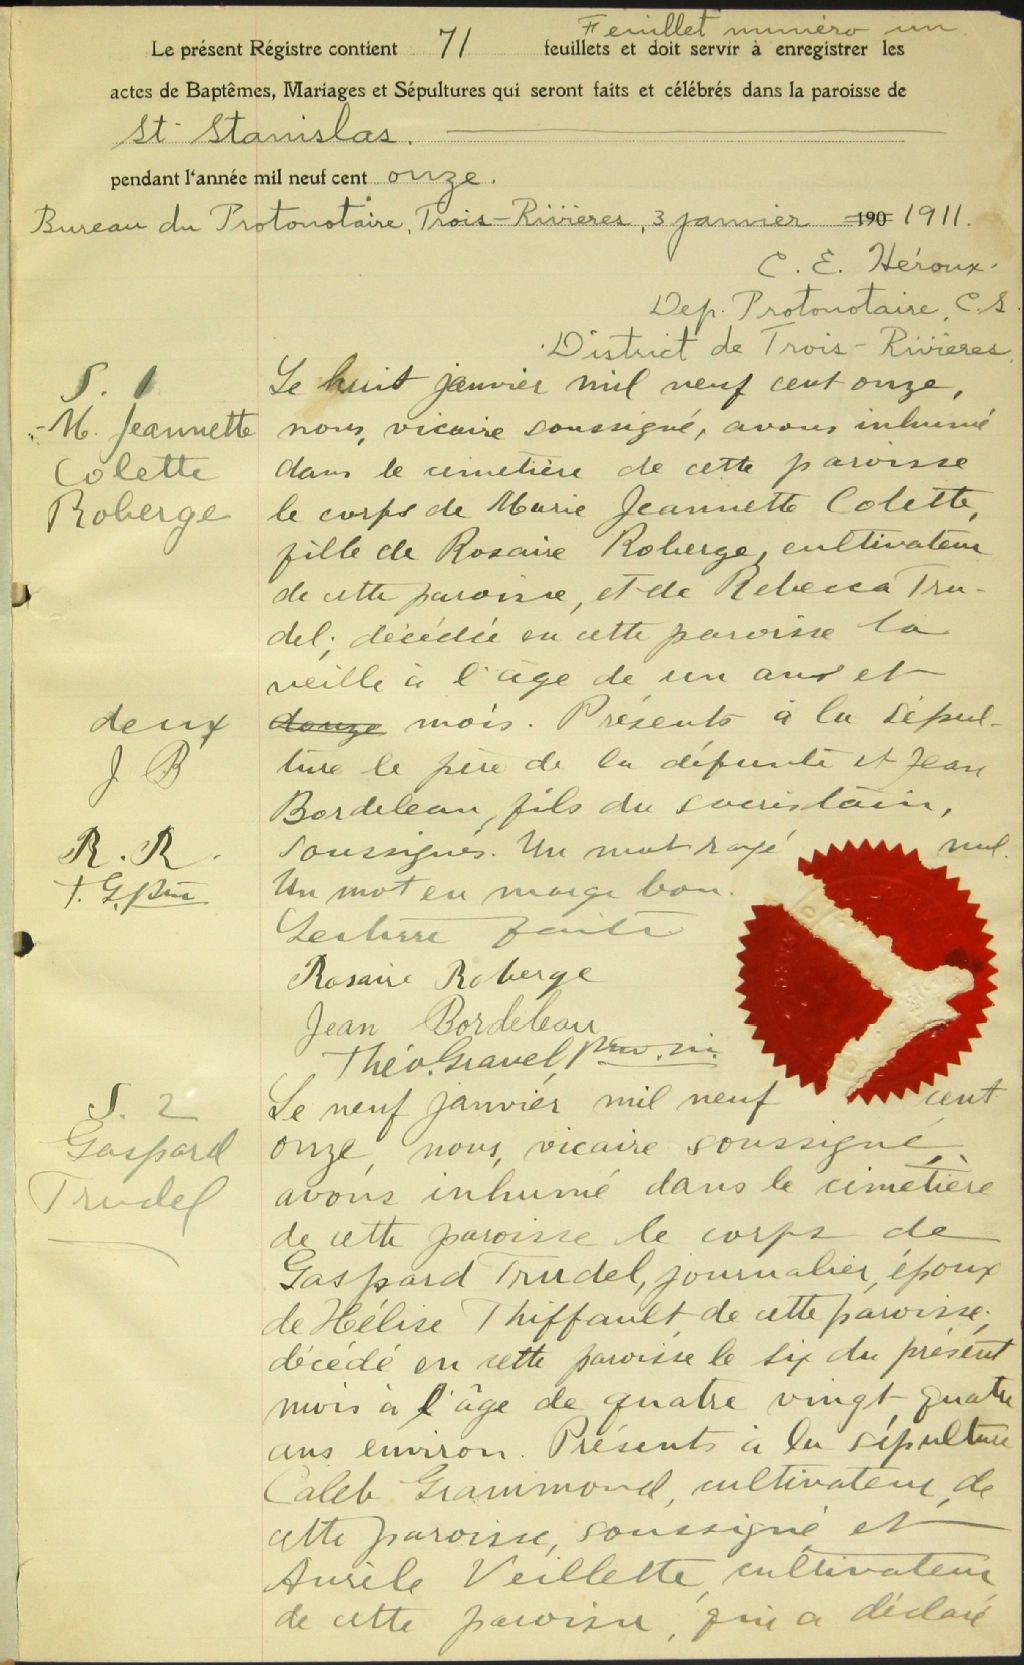 Feuillet numéro un
Le présent Régistre contient 71 feuillets et doit servir à enregistrer les
actes de Baptêmes, Mariages et Sépultures qui seront faits et célébrés dans la paroisse de
St Stanislas.
pendant l'année mil neuf cent onze.
Bureau du Protonotaire, Trois-Rivières, 3 janvier 190 1911.
C. E. Héroux.
Dep. Protonotaire, C.S.
District de Trois-Rivières
S. 1
M. Jeannette
Colette
Roberge
Le huit janvier mil neuf cent onze,
nous, vicaire soussigné, avons inhumé
dans le cimetière de cette paroisse
le corps de Marie Jeannette Colette,
fille de Rosaire Roberge, cultivateur
de cette paroisse, et de Rebecca Tru-
del; décédée en cette paroisse la
veille à l'âge de un ans et
deux
J B
douze mois. Présents à la sépul-
ture le père de la défunte et Jean
Bordeleau, fils du sacristain,
R. R.
T. G. ptre
soussignés. Un mot rayé nul.
Un mot en marge bon.
Lecture faite
Rosaire Roberge
Jean Bordeleau
Théo. Gravel, ptre. vic.
S. 2
Gaspard
Trudel
Le neuf janvier mil neuf cent
onze, nous, vicaire soussigné,
avons inhumé dans le cimetière
de cette paroisse le corps de
Gaspard Trudel, journalier, époux
de Hélise Thiffault de cette paroisse,
décédé en cette paroisse le six du présent
mois à l'âge de quatre vingt quatre
ans environ. Présents à la sépulture
Caleb Grammond, cultivateur, de
cette paroisse, soussigné et
Aurèle Veillette, cultivateur
de cette paroisse, qui a déclaré